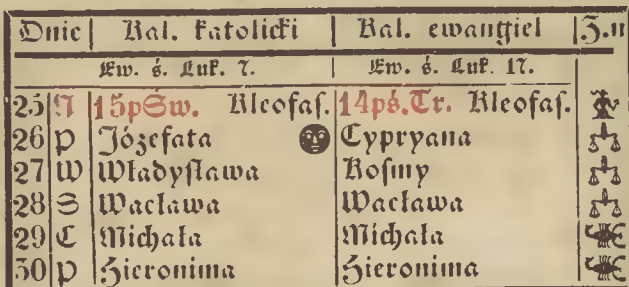 Dnie Kal. katolicki Kal. ewangiel Z.n
Ew. ś. Łuk. 7. Ew. ś. Łuk. 17.
25 N 15pŚw. Kleofaſ. 14pś.Tr. Kleofaſ.
26 P Józefata Cypryana
27 W Władyſława Koſmy
28 S Wacława Wacława
29 C Michała Michała
30 P Hieronima Hieronima